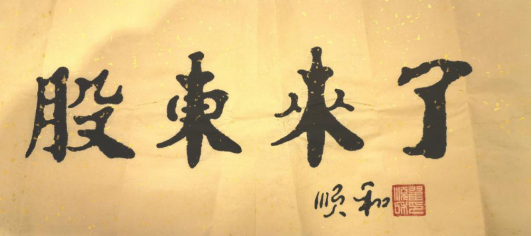 股東來了
順和